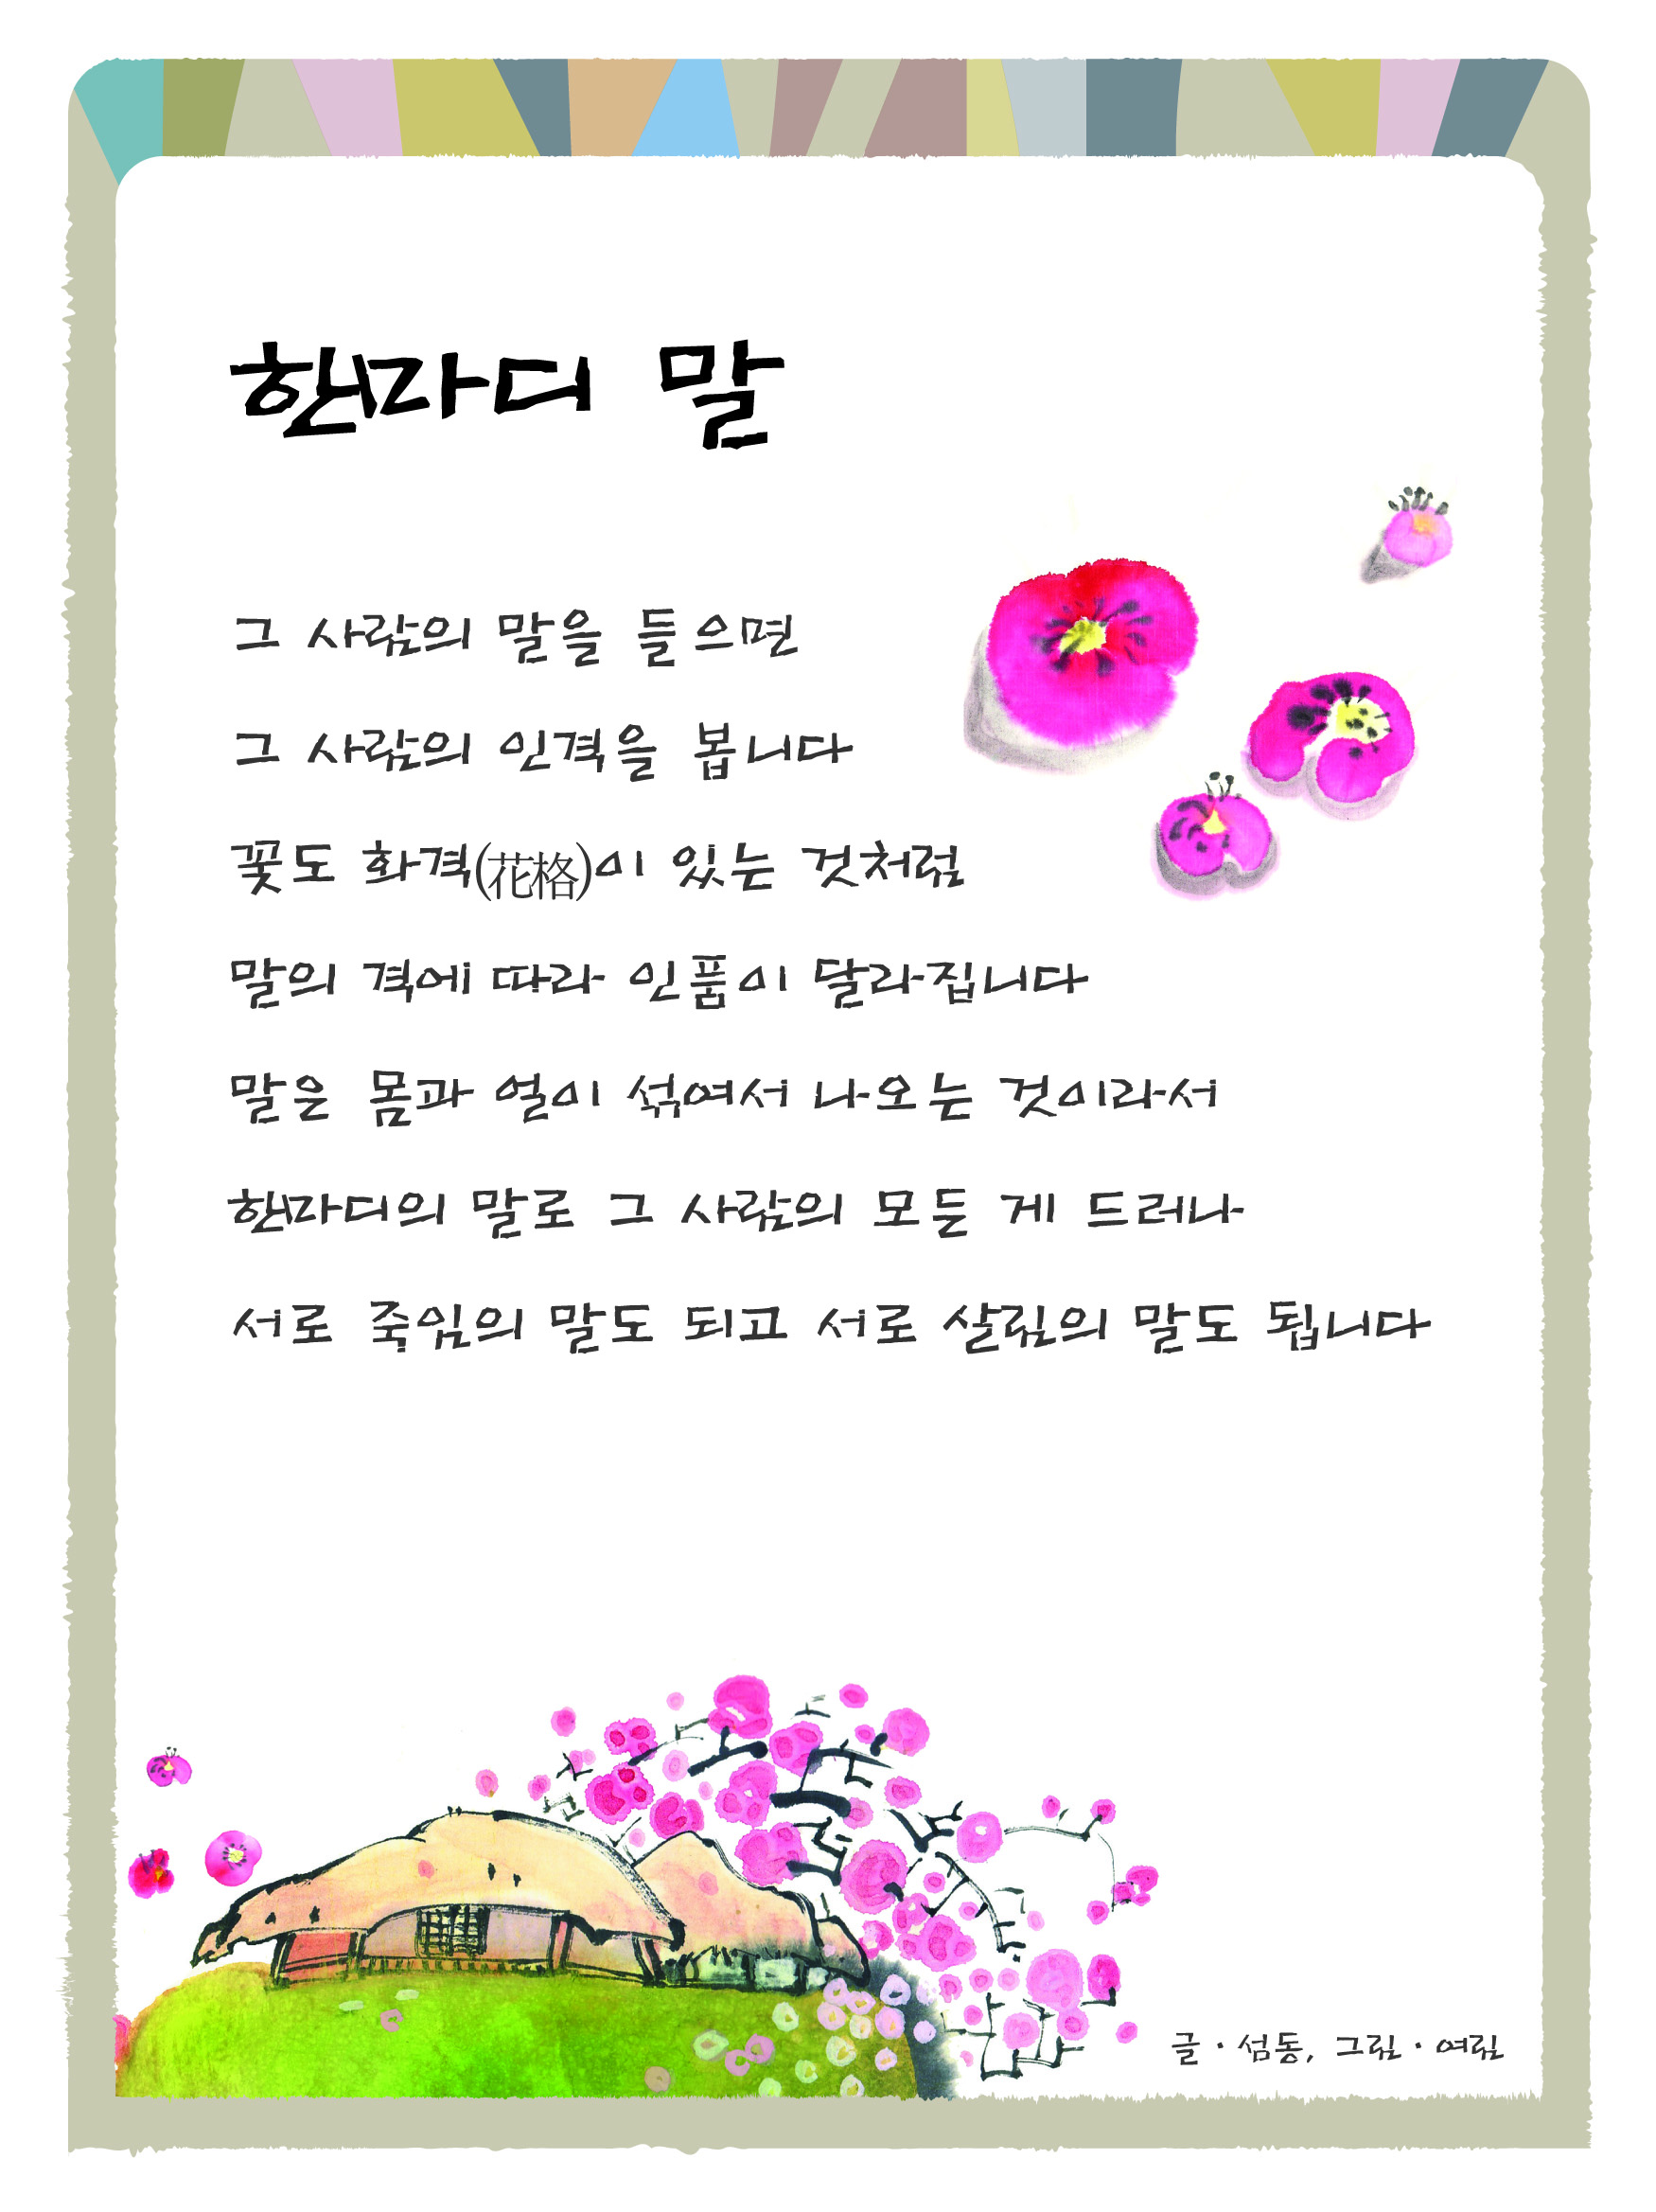 한마디 말
그 사람의 말을 들으면
그 사람의 인격을 봅니다
꽃도 화격(花格)이 있는 것처럼
말의 격에 따라 인품이 달라집니다
말은 몸과 얼이 섞여서 나오는 것이라서
한마디의 말로 그 사람의 모든 게 드러나
서로 죽임의 말도 되고 서로 살림의 말도 됩니다
글·섬동, 그림·여림